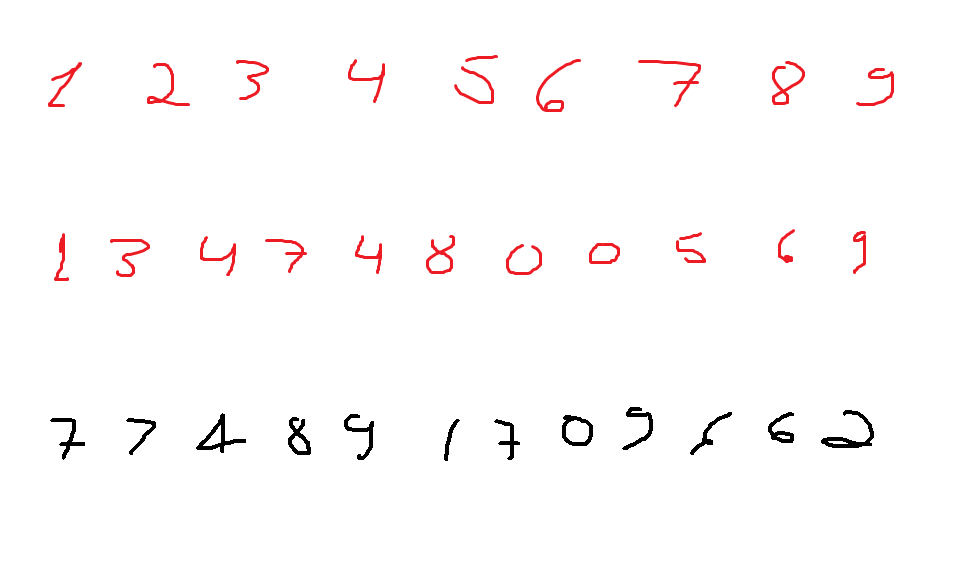 1 2 3 4 5 6 7 8 9
1 3 4 7 4 8 0 0 5 6 9
7 7 4 8 9 1 7 0 9 6 6 2